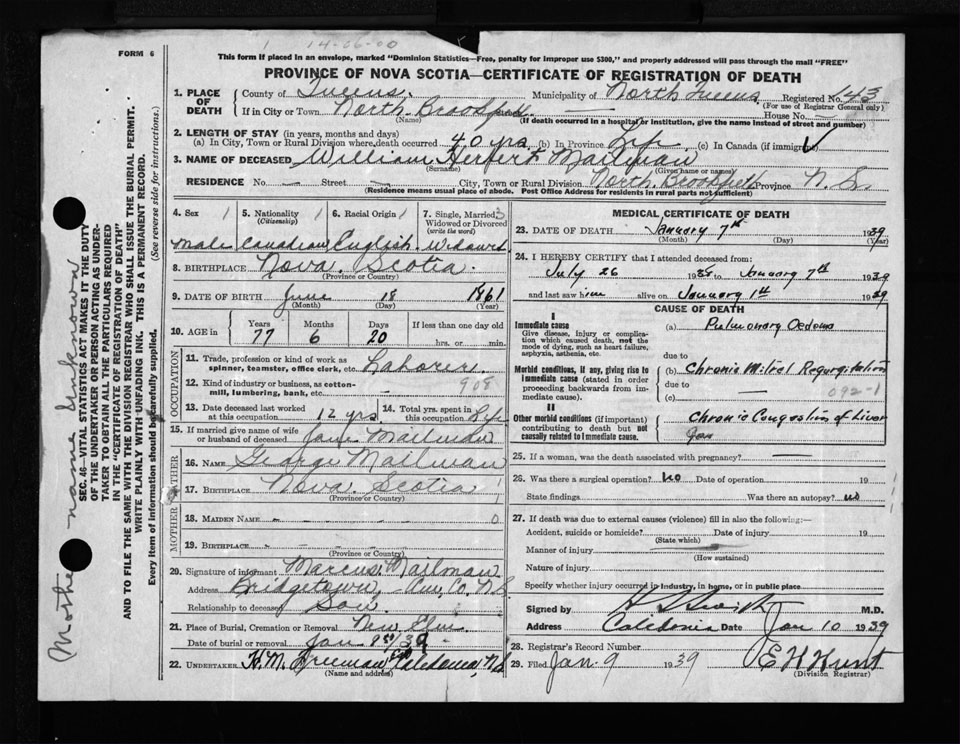 14-06-00
FORM 6
This form if placed in an envelope, marked "Dominion Statistics—Free, penalty for improper use $300," and properly addressed will pass through the mail "FREE"
PROVINCE OF NOVA SCOTIA—CERTIFICATE OF REGISTRATION OF DEATH
1. PLACE OF DEATH County of Queens. Municipality of North Queens Registered No. 143
(For use of Registrar General only)
If in City or Town North Brookfield House No. —
(Name) (If death occurred in a hospital or institution, give the name instead of street and number)
2. LENGTH OF STAY (in years, months and days)
(a) In City, Town or Rural Division where death occurred 40 yrs (b) In Province Life (c) In Canada (if immigrant)
3. NAME OF DECEASED William Herbert Mailman
(Surname) (Given name or names)
RESIDENCE No. — Street — City, Town or Rural Division North Brookfield Province N.S.
(Residence means usual place of abode. Post Office Address for residents in rural parts not sufficient)
4. Sex 1 5. Nationality (Citizenship) 1 6. Racial Origin 1 7. Single, Married, Widowed or Divorced (write the word) 3
Male Canadian English Widower
8. BIRTHPLACE Nova Scotia.
(Province or Country)
9. DATE OF BIRTH June 18 1861
(Month) (Day) (Year)
10. AGE in Years Months Days If less than one day old
77 6 20 hrs. or min.
OCCUPATION
11. Trade, profession or kind of work as spinner, teamster, office clerk, etc. Laborer.
12. Kind of industry or business, as cotton-mill, lumbering, bank, etc. 908
13. Date deceased last worked at this occupation 12 yrs 14. Total yrs. spent in this occupation Life
15. If married give name of wife or husband of deceased Jane Mailman
FATHER
16. NAME George Mailman
17. BIRTHPLACE Nova Scotia
(Province or Country)
MOTHER
18. MAIDEN NAME — — — 0
19. BIRTHPLACE — — — —
(Province or Country)
20. Signature of informant Marcus Mailman
Address Bridgetown, Ann. Co. N.S
Relationship to deceased Son.
21. Place of Burial, Cremation or Removal New Elm
Date of burial or removal Jan 9 /39
22. UNDERTAKER H.M. Freeman, Caledonia, N.S
(Name and address)
MEDICAL CERTIFICATE OF DEATH
23. DATE OF DEATH January 7th 1939
(Month) (Day) (Year)
24. I HEREBY CERTIFY that I attended deceased from:
July 26 1938 to January 7th 1939
and last saw him alive on January 1st 1939
CAUSE OF DEATH
I
Immediate cause
Give disease, injury or complication which caused death, not the mode of dying, such as heart failure, asphyxia, asthenia, etc.
(a) Pulmonary Oedema
due to
Morbid conditions, if any, giving rise to immediate cause (stated in order proceeding backwards from immediate cause).
(b) Chronic Mitral Regurgitation
due to 092-1
(c) —
II
Other morbid conditions (if important) contributing to death but not causally related to immediate cause.
Chronic Congestion of Liver
25. If a woman, was the death associated with pregnancy? —
26. Was there a surgical operation? no Date of operation 19
State findings Was there an autopsy? no
27. If death was due to external causes (violence) fill in also the following:—
Accident, suicide or homicide? Date of injury 19
(State which)
Manner of injury
(How sustained)
Nature of injury
Specify whether injury occurred in industry, in home, or in public place
Signed by M.D.
Address Caledonia Date Jan 10 1939
28. Registrar's Record Number
29. Filed Jan. 9 1939 E H Hunt
(Division Registrar)
SEC. 46—VITAL STATISTICS ACT MAKES IT THE DUTY
OF THE UNDERTAKER OR PERSON ACTING AS UNDER-
TAKER TO OBTAIN ALL THE PARTICULARS REQUIRED
IN THE "CERTIFICATE OF REGISTRATION OF DEATH"
AND TO FILE THE SAME WITH THE DIVISION REGISTRAR WHO SHALL ISSUE THE BURIAL PERMIT.
WRITE PLAINLY WITH UNFADING INK. THIS IS A PERMANENT RECORD.
Every item of information should be carefully supplied. (See reverse side for instructions.)
Mothers name unknown